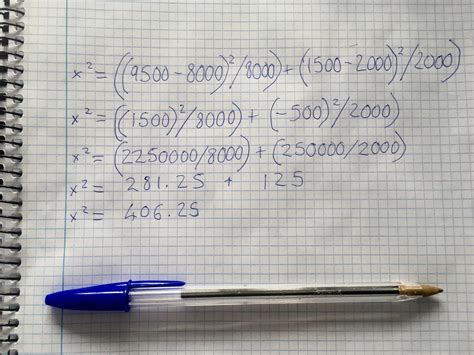 x² = ((9500 - 8000)²/8000) + (1500 - 2000)²/2000)
x² = ((1500)²/8000) + (-500)²/2000)
x² = (2250000/8000) + (250000/2000)
x² = 281.25 + 125
x² = 406.25